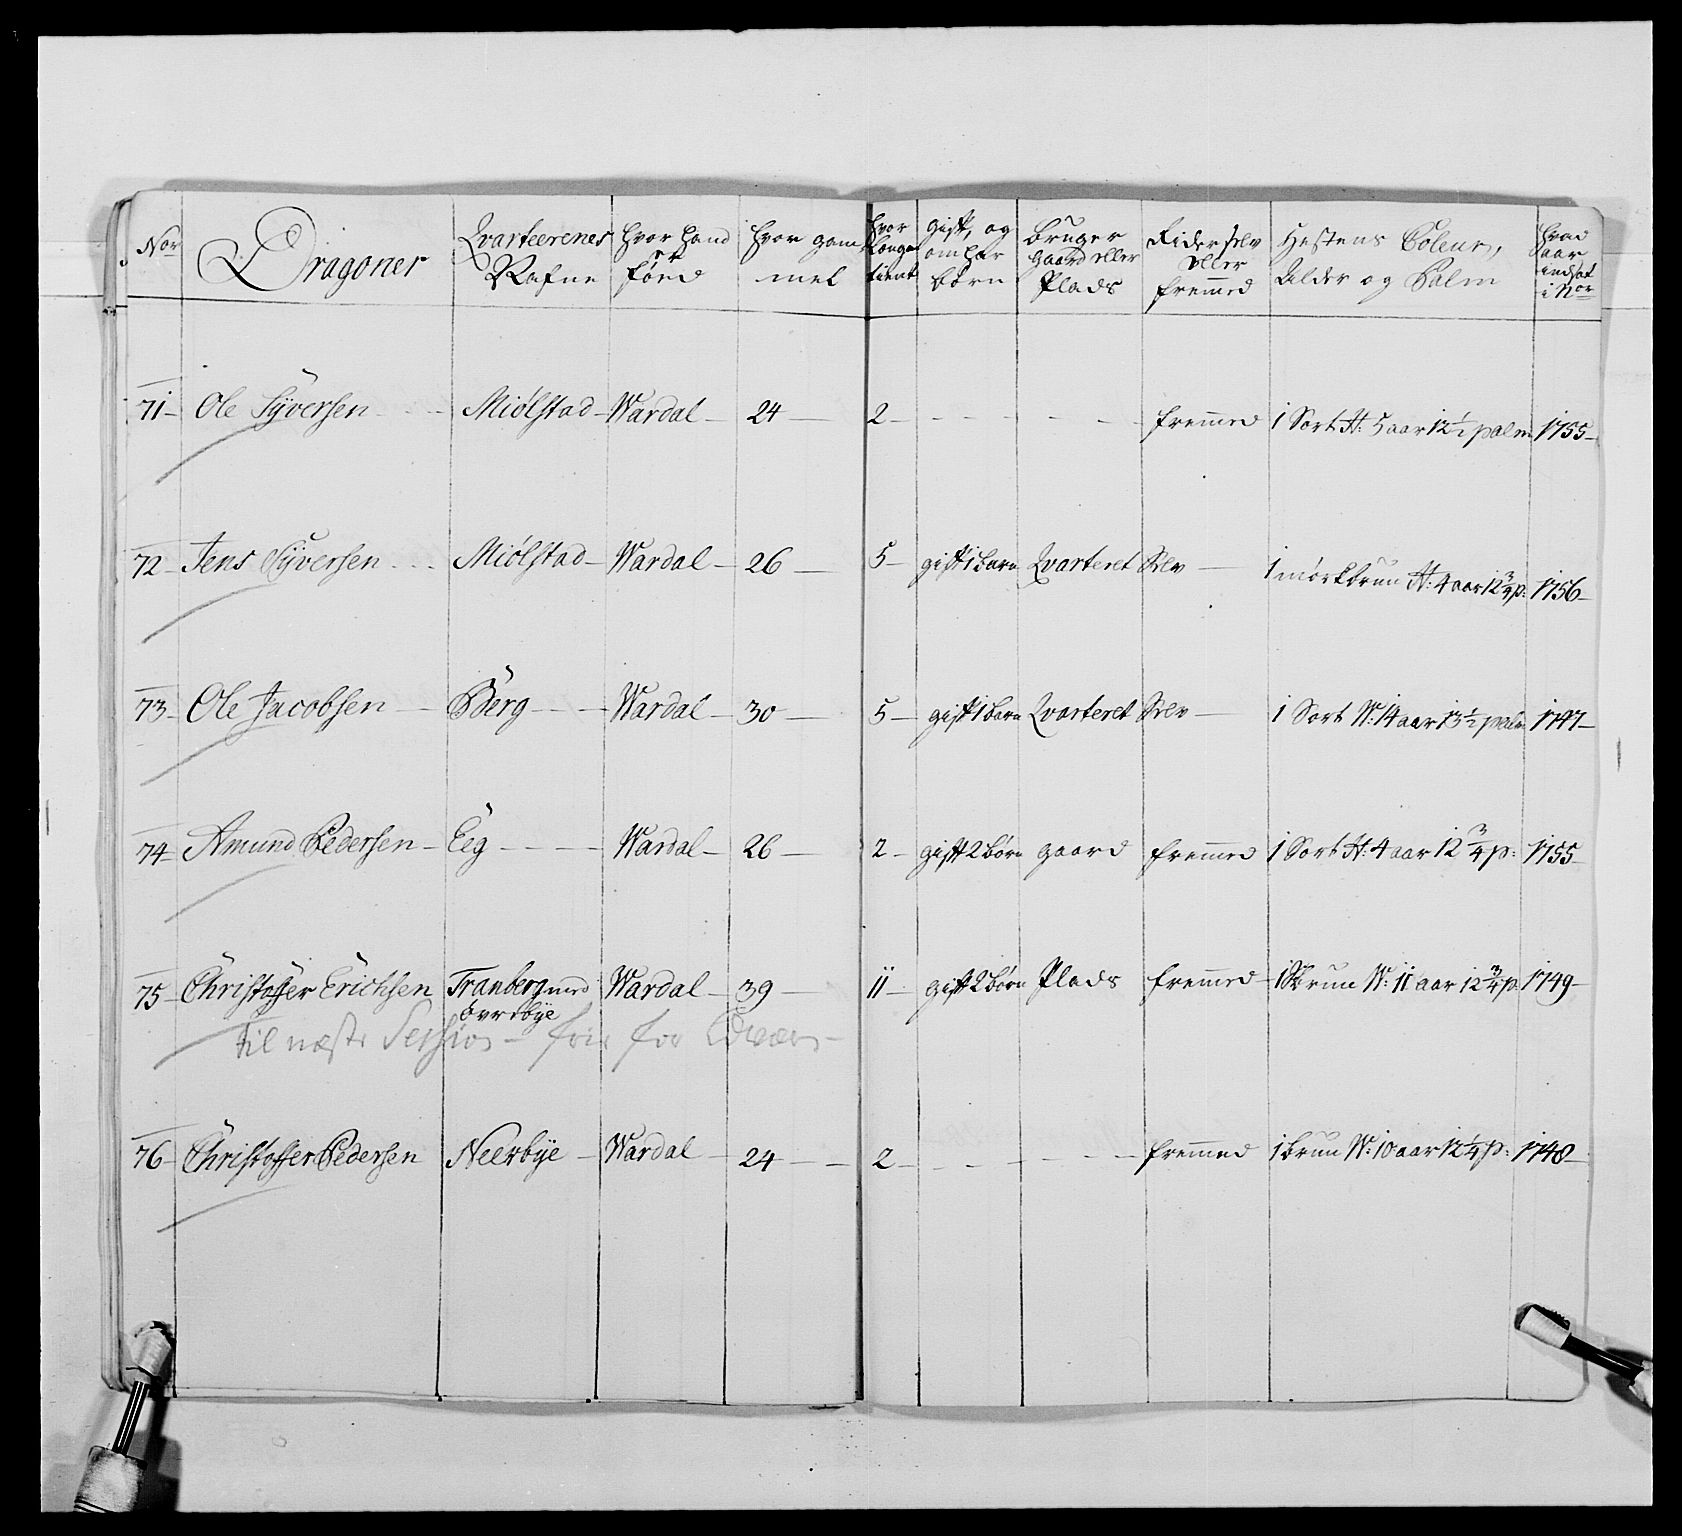 Nor Dragoner Qvarteerenes Nafne hvor hand er föed hvor gammel hvor længe tient gift, og om har börn bruger gaard eller Plads Rider selv eller fremmed Hestens Coleur, Alder og Palm hvad aar indsat i Nor
71 Ole Syversen Miölstad Wardal 24 2 fremmed 1 Sort H: 5 aar 12½ palm 1755
72 Jens Syversen Miölstad Wardal 26 5 gift 1 barn Qvarteret Selv 1 mörkbrun H: 4 aar 12¾ p: 1756
73 Ole Jacobsen Berg Wardal 30 5 gift 1 barn Qvarteret Selv 1 Sort W: 14 aar 13½ palm 1747
74 Amund Pedersen Eeg Wardal 26 2 gift 2 börn gaard fremmed 1 Sort H: 4 aar 12¾ p: 1755
75 Christoffer Erichsen Tranberg med Wardal 39 11 gift 2 börn Plads fremmed 1 brun W: 11 aar 12¾ p: 1749
övrebye
til næste Session - for
76 Christoffer Pedersen Neerbye Wardal 24 2 fremmed 1 brun W: 10 aar 12¼ p: 1748